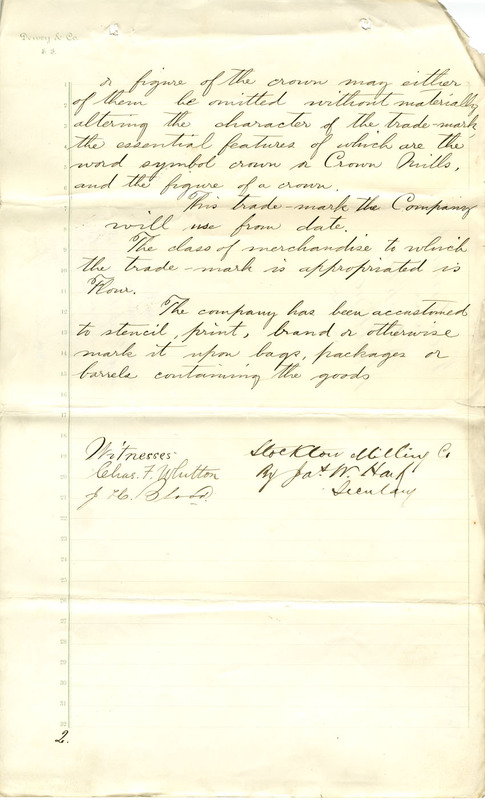 Dewey & Co.
or figure of the crown may either
of them be omitted without materially
altering the character of the trade-mark
the essential features of which are the
word symbol crown or Crown Mills,
and the figure of a crown.
This trade-mark the Company
will use from date.
The class of merchandise to which
the trade-mark is appropriated is
Flour.
The company has been accustomed
to stencil, print, brand or otherwise
mark it upon bags, packages or
barrels containing the goods
Witnesses
Stockton Milling Co
Chas. F. Whitton
By Jas W. Hart
Secretary
2.